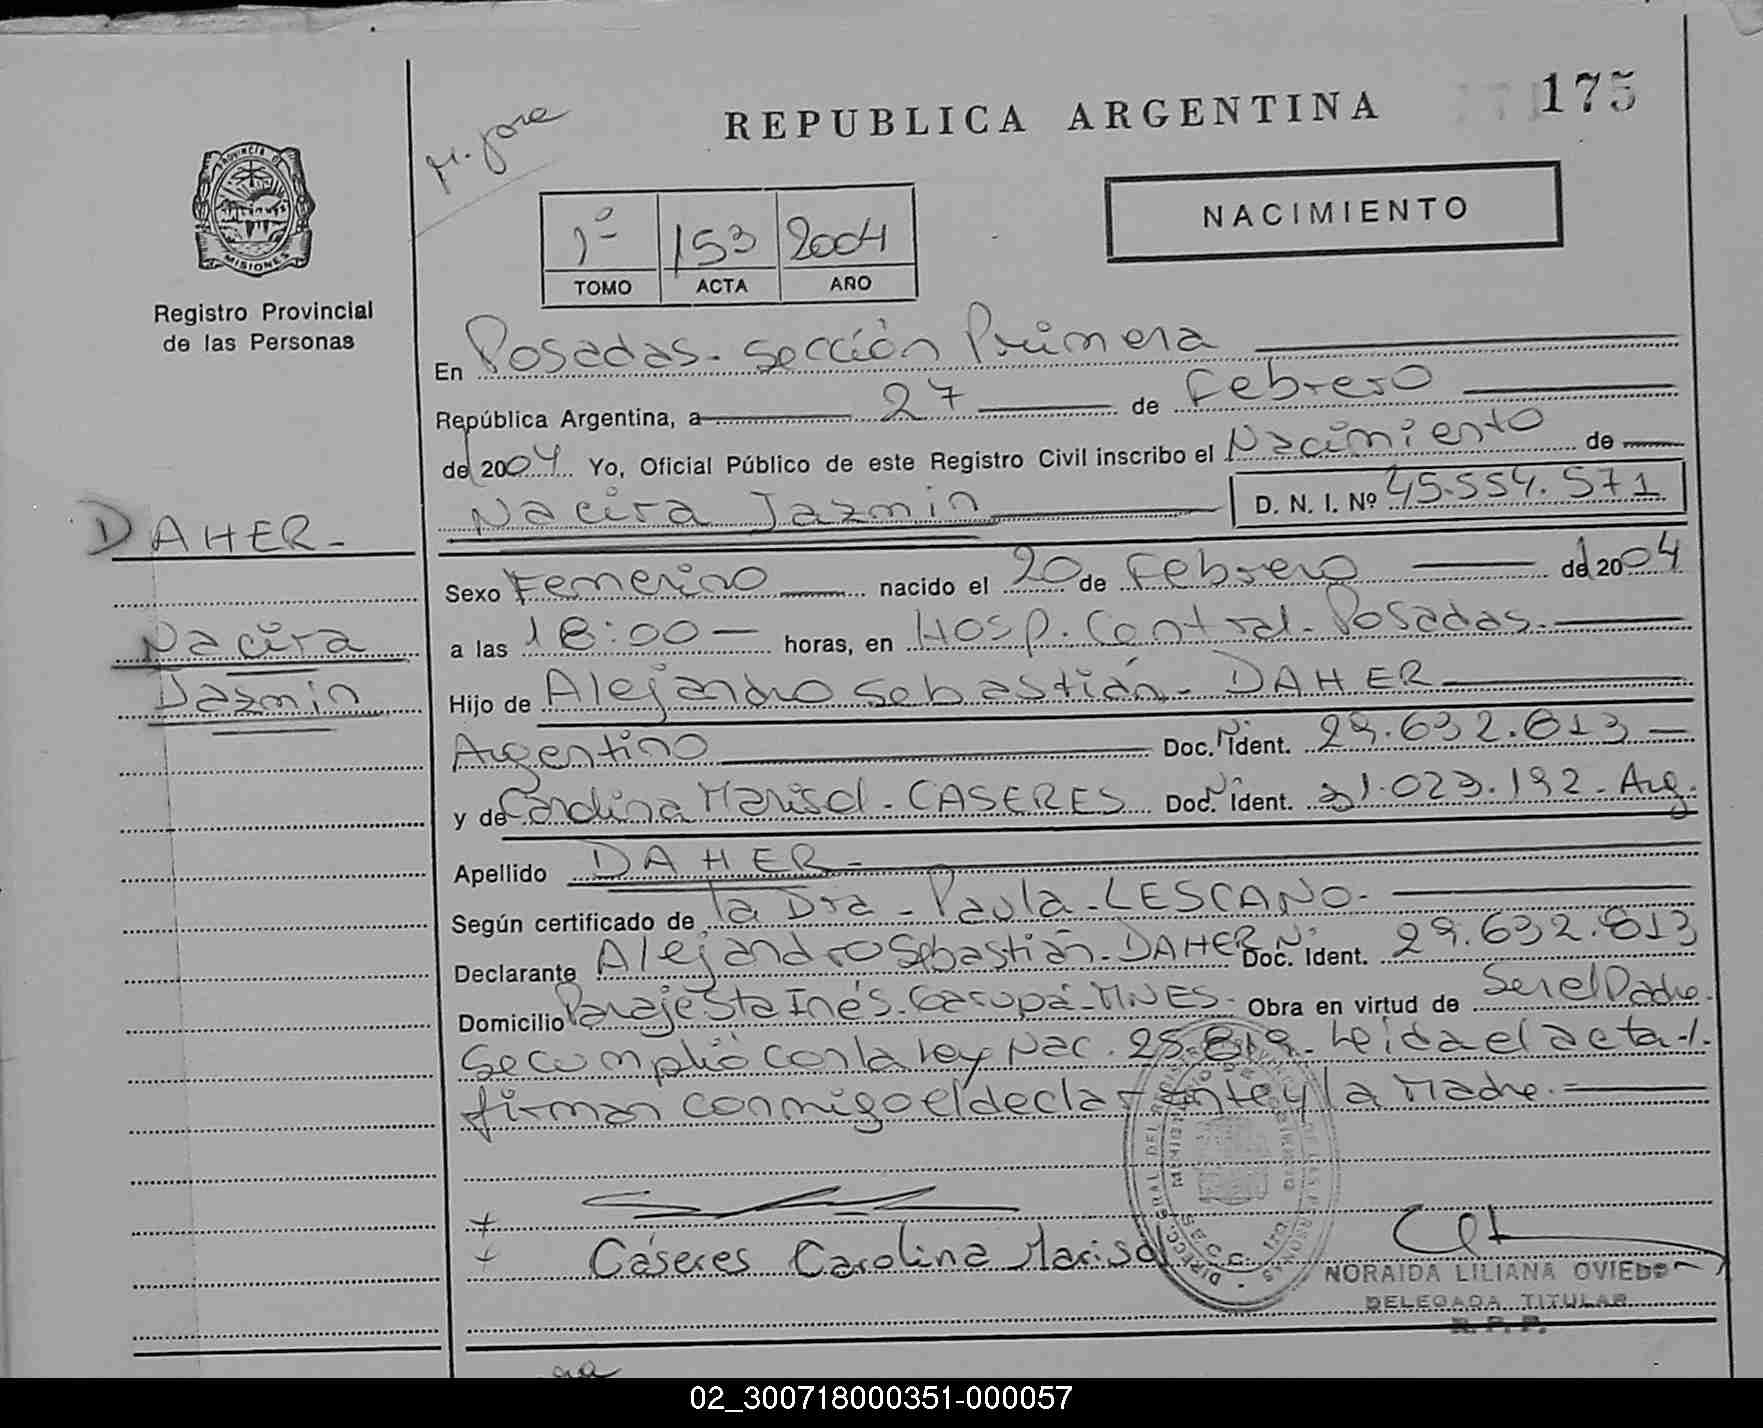 175
REPUBLICA ARGENTINA
M. Jose
NACIMIENTO
PROVINCIA DE
MISIONES
Registro Provincial
de las Personas
1º 153 2004
TOMO ACTA AÑO
En Posadas - Sección Primera
República Argentina, a 27 de Febrero
de 2004 Yo, Oficial Público de este Registro Civil inscribo el Nacimiento de
Nacira Jazmin D. N. I. Nº 45.554.571
DAHER -
Nacira
Jazmin
Sexo Femenino nacido el 20 de Febrero de 2004
a las 18:00 - horas, en Hosp. Central - Posadas.
Hijo de Alejandro Sebastián - DAHER
Argentino Doc. Nº ident. 29.632.813 -
y de Carolina Marisol - CASERES Doc. Nº Ident. 31.023.192 - Arg.
Apellido DAHER -
Según certificado de la Dra - Paula - LESCANO -
Declarante Alejandro Sebastián - DAHER Doc. Nº Ident. 29.632.813
Domicilio Paraje Sta Inés - Garupá - MNES - Obra en virtud de Ser el Padre.
Se cumplió con la Ley Nac. 25.819 - Leida el acta -/.
firman conmigo el declarante y la Madre. =
Cáseres Carolina Marisol
NORAIDA LILIANA OVIEDO
DELEGADA TITULAR
R. P. P.
02_300718000351-000057